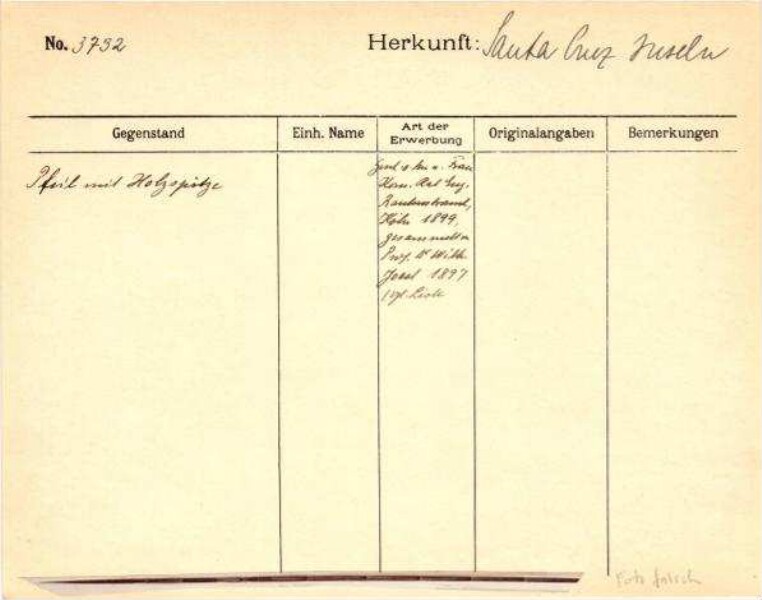 No. 3732
Herkunft: Santa Cruz Inseln
Gegenstand
Einh. Name
Art der Erwerbung
Originalangaben
Bemerkungen
Pfeil mit Holzspitze
v. Frau
Kom. Rat Eug.
Rautenstrauch,
Köln 1899,
gesammelt v.
Prof. Dr Wilh.
Joest 1897
Foto falsch